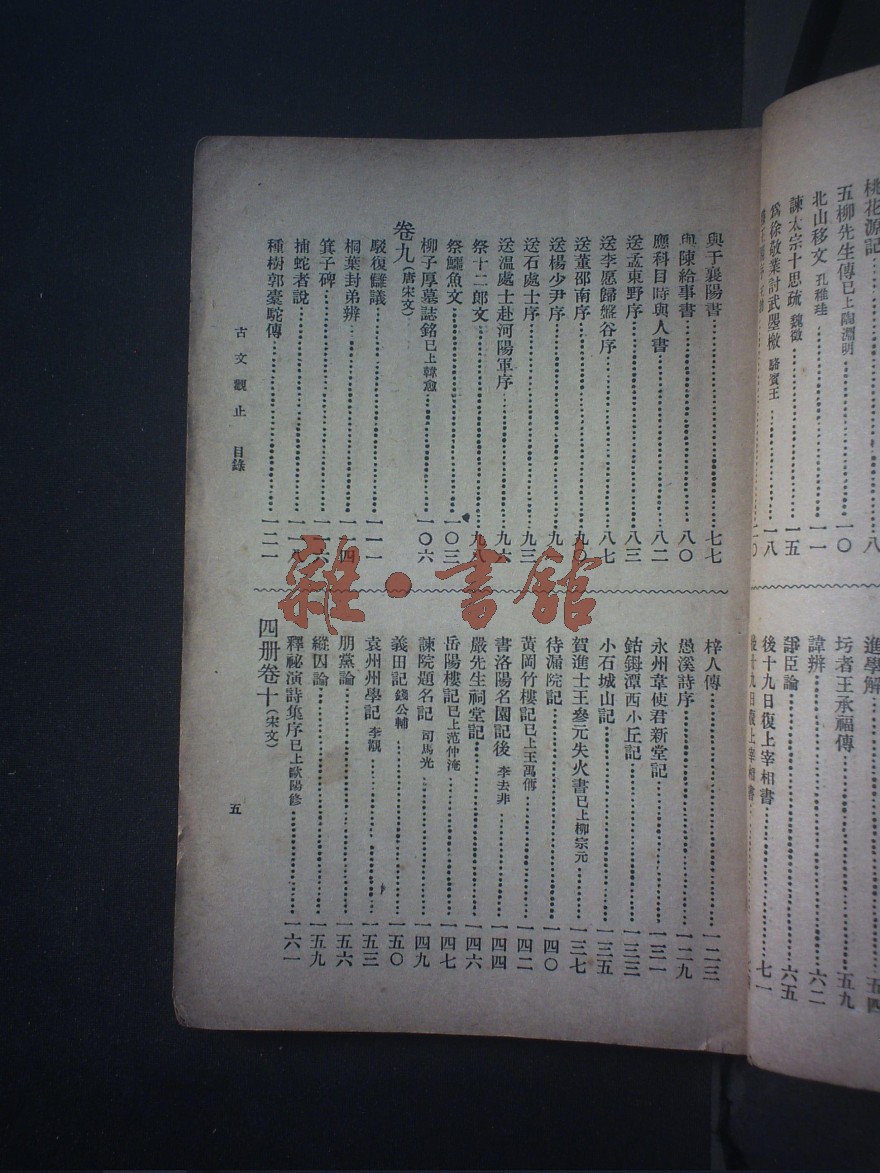 桃花源記……八
五柳先生傳已上陶淵明……一〇
北山移文 孔稚珪……一一
諫太宗十思疏 魏徵……一五
爲徐敬業討武曌檄 駱賓王……一八
進學解……五四
圬者王承福傳……五九
諱辨……六二
諍臣論……六五
後十九日復上宰相書……七一
與于襄陽書……七七
與陳給事書……八〇
應科目時與人書……八二
送孟東野序……八三
送李愿歸盤谷序……八七
送董邵南序……九〇
送楊少尹序……九一
送石處士序……九三
送溫處士赴河陽軍序……九六
祭十二郎文……九八
祭鱷魚文……一〇三
柳子厚墓誌銘已上韓愈……一〇六
卷九(唐宋文)
駁復讎議……一一一
桐葉封弟辨……一一四
箕子碑……一一六
捕蛇者說……一一八
種樹郭橐駝傳……一二一
梓人傳……一二三
愚溪詩序……一二九
永州韋使君新堂記……一三一
鈷鉧潭西小丘記……一三三
小石城山記……一三五
賀進士王參元失火書已上柳宗元……一三七
待漏院記……一四〇
黃岡竹樓記已上王禹偁……一四二
書洛陽名園記後 李去非……一四四
嚴先生祠堂記……一四六
岳陽樓記已上范仲淹……一四七
諫院題名記 司馬光……一四九
義田記錢公輔……一五〇
袁州州學記 李覯……一五三
朋黨論……一五六
縱囚論……一五九
釋祕演詩集序已上歐陽修……一六一
四册卷十(宋文)
古文觀止 目錄
五
雜·書館